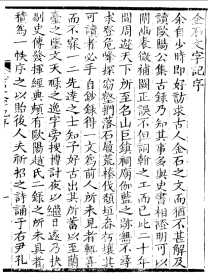 金石文字記序
余自少時即好訪求古人金石之文而猶不甚解及
讀歐陽公集古錄乃知其事多與史書相證明可以
闡幽表微補闕正誤不但詞翰之工而已比二十年
間周遊天下所至名山巨鎮祠廟伽藍之跡無不尋
求登危峰探窈壑捫落石履荒榛伐頹垣畚朽壤其
可讀者必手自鈔錄得一文為前人所未見者輒喜
而不寐一二先達之士知予好古出其所蓄以至蘭
臺之墜文天祿之逸字旁搜博討夜以繼日遂乃抉
剔史傳發揮經典頗有歐陽趙氏二錄之所未具者
積為一帙序之以貽後人夫祈招之詩誦于右尹孔